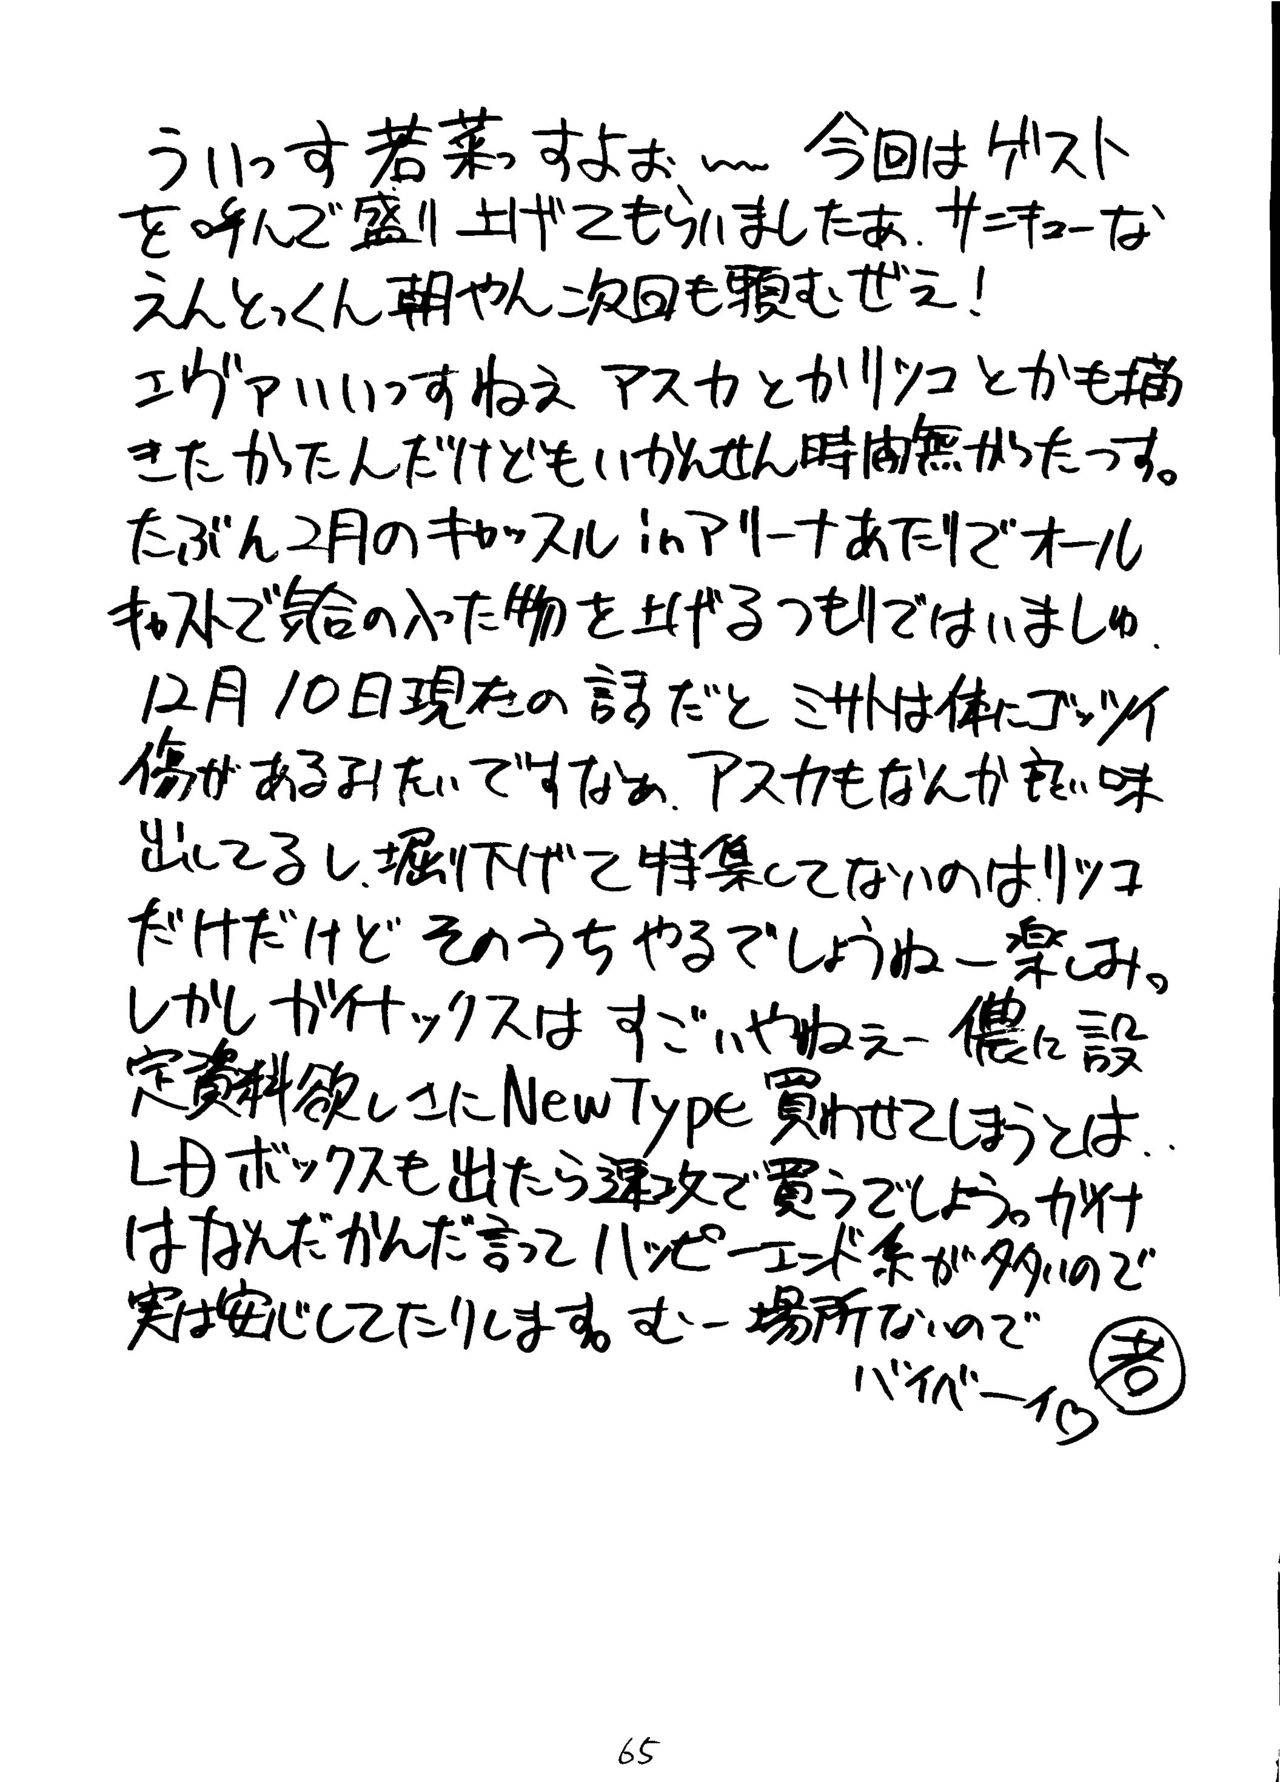 ういっす若菜っすよぉ〜 今回はゲスト
を呼んで盛り上げてもらいましたあ、サンキューな
えんどっくん朝やん次回も頼むぜえ!
エヴァいいっすねえ アスカとかリツコとかも描
きたかったんだけどもいかんせん時間無かったっす。
たぶん2月のキャッスルinアリーナあたりでオール
キャストで気合の入った物を上げるつもりではいましゅ、
12月10日現在の話だと ミサトは体にゴッツイ
傷があるみたいですなぁ、アスカもなんか良い味
出してるし、掘り下げて特集してないのはリツコ
だけだけど そのうちやるでしょうねー楽しみ。
しかしガイナックスは すごいやねぇー 儂に設
定資料欲しさにNewType買わせてしまうとは..
LDボックスも出たら速攻で買うでしょう。ガイナ
はなんだかんだ言ってハッピーエンド系が多いので
実は安心してたりします。むー場所ないので
バイベーイ♡ 若
65